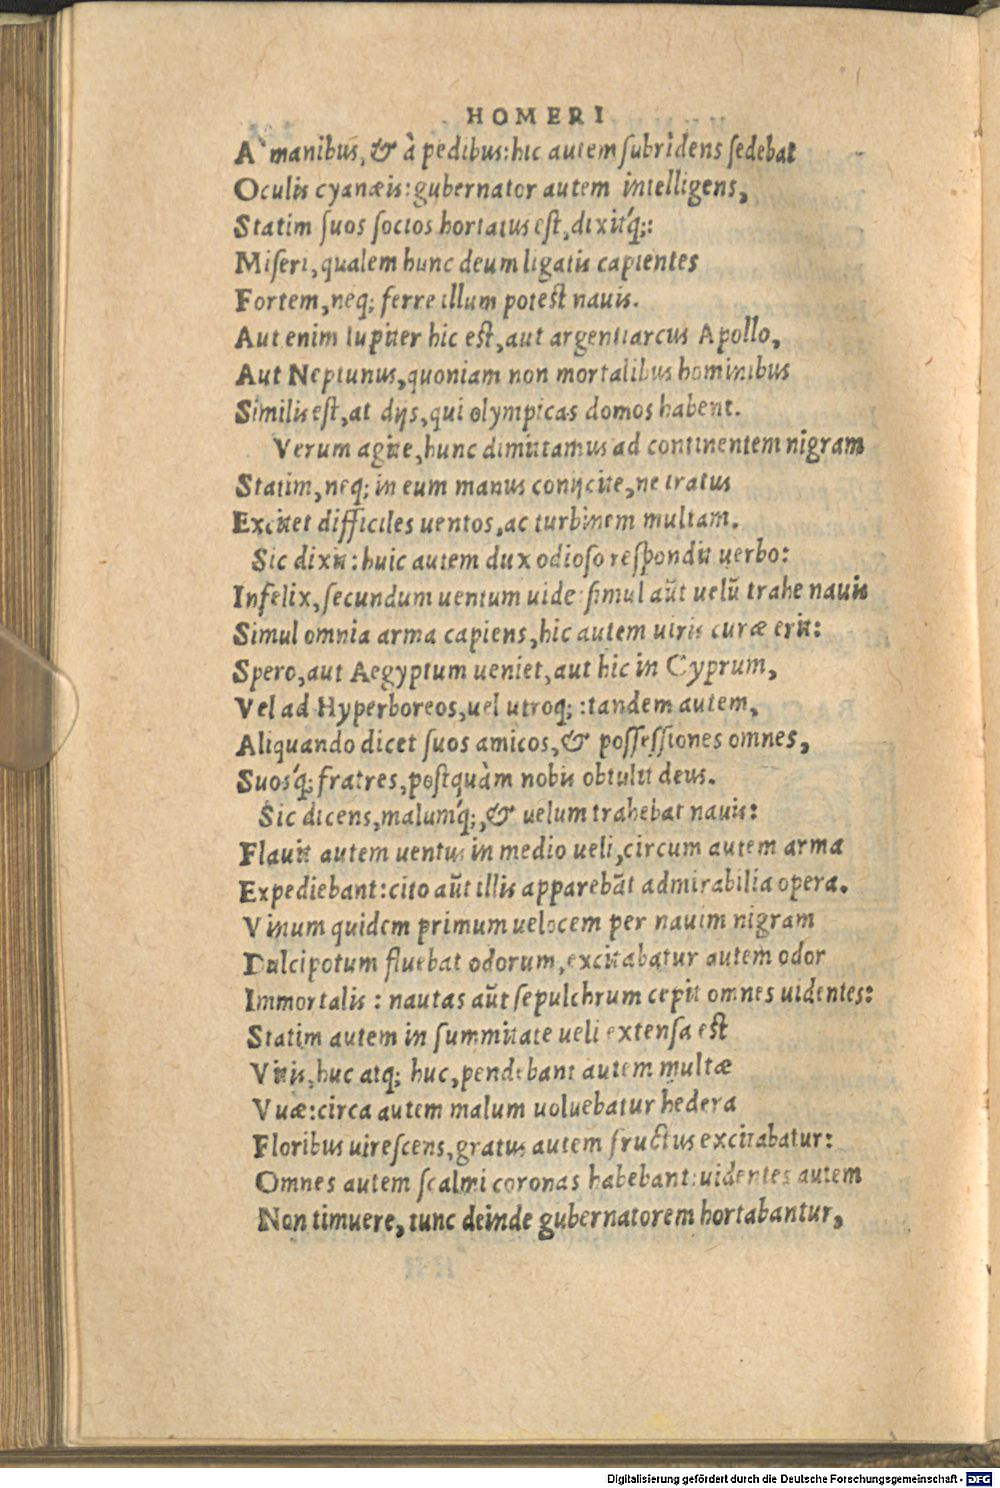 HOMERI
A manibus, & à pedibus: hic autem ſubridens ſedebat
Oculis cyanæis: gubernator autem intelligens,
Statim ſuos ſocios hortatus eſt, dixitq́;:
Miſeri, qualem hunc deum ligatis capientes
Fortem, neq; ferre illum poteſt nauis.
Aut enim Iupiter hic eſt, aut argentiarcus Apollo,
Aut Neptunus, quoniam non mortalibus hominibus
Similis eſt, at dijs, qui olympicas domos habent.
Verum agite, hunc dimittamus ad continentem nigram
Statim, neq; in eum manus conijcite, ne iratus
Excitet difficiles uentos, ac turbinem multam.
Sic dixit: huic autem dux odioſo reſpondit uerbo:
Infelix, ſecundum uentum uide: ſimul aũt uelũ trahe nauis
Simul omnia arma capiens, hic autem uiris curæ erit:
Spero, aut Aegyptum ueniet, aut hic in Cyprum,
Vel ad Hyperboreos, uel utroq; : tandem autem,
Aliquando dicet ſuos amicos, & poſſeſſiones omnes,
Suosq́; fratres, poſtquàm nobis obtulit deus.
Sic dicens, malumq́;, & uelum trahebat nauis:
Flauit autem uentus in medio ueli, circum autem arma
Expediebant: cito aũt illis apparebãt admirabilia opera.
Vinum quidem primum uelocem per nauim nigram
Dulcipotum fluebat odorum, excitabatur autem odor
Immortalis : nautas aũt ſepulchrum cepit omnes uidentes:
Statim autem in ſummitate ueli extenſa eſt
Vitis, huc atq; huc, pendebant autem multæ
Vuæ: circa autem malum uoluebatur hedera
Floribus uireſcens, gratus autem fructus excitabatur:
Omnes autem ſcalmi coronas habebant: uidentes autem
Non timuere, tunc deinde gubernatorem hortabantur,
Digitalisierung gefördert durch die Deutsche Forschungsgemeinschaft - DFG